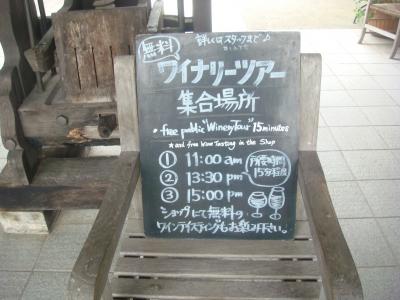 詳しくはスタッフまで♪
無料
ワイナリーツアー
集合場所
・free public "Winery Tour" 15minutes
★and free Wine Tasting in the Shop
① 11:00 am
② 13:30 pm
③ 15:00 pm
所要時間
15分程度
ショップにて無料の
ワインテイスティングもお楽しみ下さい。